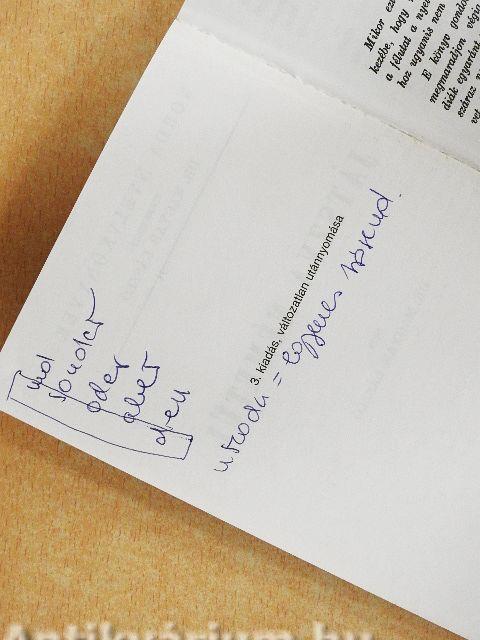 Mikor ez
kezébe, hogy
a félutat a nye
hoz ugyanis nem
E könyv gondo
megmaradjon végi
diák egyaránt
száraz
vet
3. kiadás, változatlan utánnyomása
utoda = egyenes szórend.
und
sonder
oder
aber
den
Antikvárium.hu